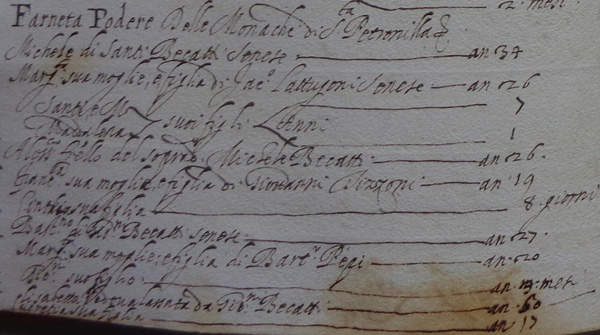 2. mesi
Farneta Podere Delle Monache di S.ta Petronilla
Michele di Santi Becatti Senese an 34
Marg.ta sua moglie, e figlia di Jac.o Lattugoni Senese an 26
Santi e M 7
suoi figli Anni
Madalena 1
Aless.o fr̃ello del sopr.o Michele Becatti an 26.
sua moglie, e figlia di Giovanni an 19
sua figlia 8 giorni
Bast.no di Gio: Becatti Senese an 27
Marg.ta sua moglie, e figlia di Bart.o Pepi an 20
suo figlio an mesi
da Gio: Becatti an 60
figlia an 17